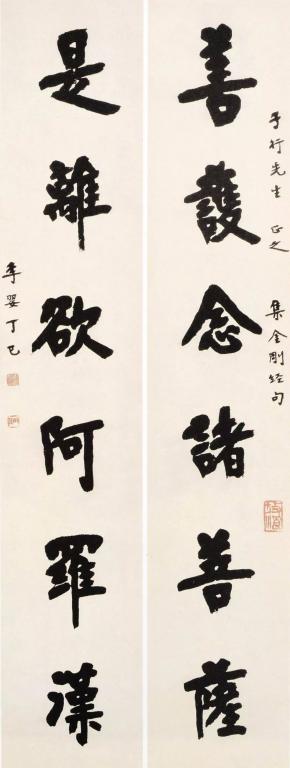 予行先生 正之 集金剛經句
善護念諸善薩
是離欲阿羅漢
李嬰丁巳